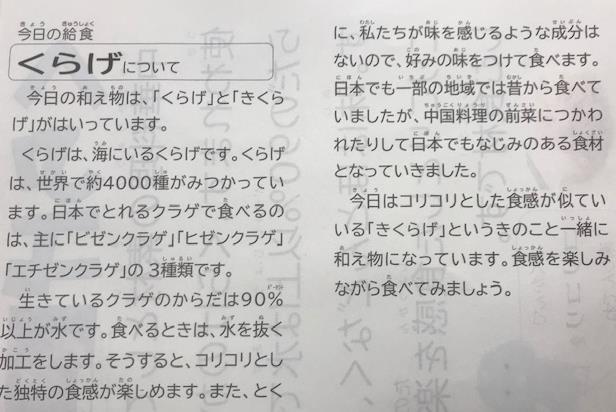 今日の給食
くらげについて
今日の和え物は、「くらげ」と「きくら
げ」がはいっています。
くらげは、海にいるくらげです。くらげ
は、世界で約4000種がみつかってい
ます。日本でとれるクラゲで食べるの
は、主に「ビゼンクラゲ」「ヒゼンクラゲ」
「エチゼンクラゲ」の3種類です。
生きているクラゲのからだは90%
以上が水です。食べるときは、水を抜く
加工をします。そうすると、コリコリとし
た独特の食感が楽しめます。また、とく
に、私たちが味を感じるような成分は
ないので、好みの味をつけて食べます。
日本でも一部の地域では昔から食べて
いましたが、中国料理の前菜につかわ
れたりして日本でもなじみのある食材
となっていきました。
今日はコリコリとした食感が似てい
る「きくらげ」というきのこと一緒に
和え物になっています。食感を楽しみ
ながら食べてみましょう。